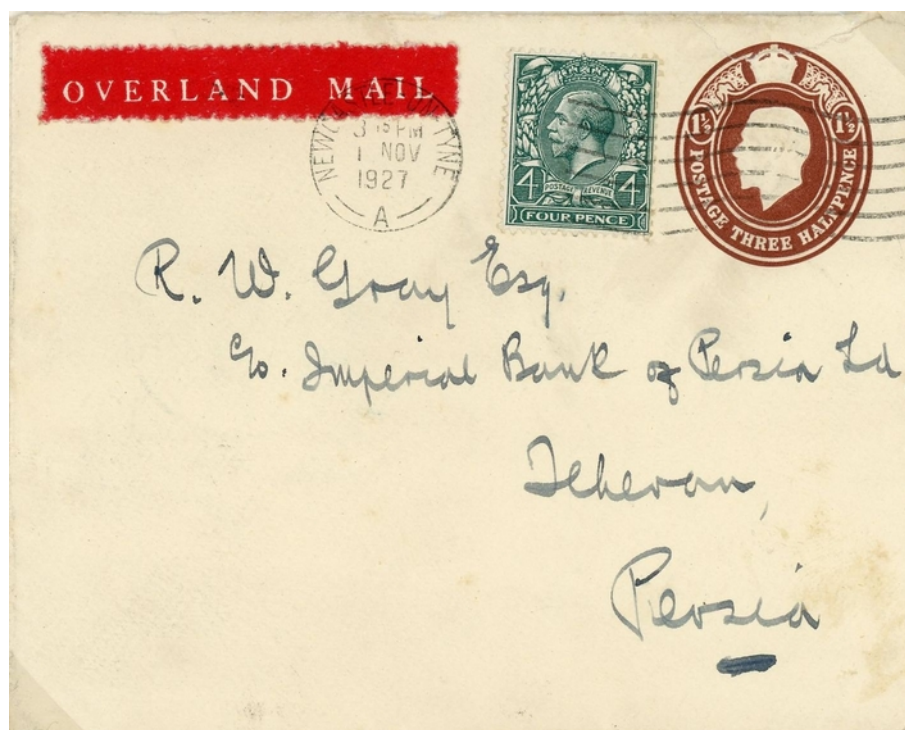 OVERLAND MAIL
NEWCASTLE-ON-TYNE
3 15 PM
1 NOV
1927
A
4 POSTAGE REVENUE 4
FOUR PENCE
1½ 1½
POSTAGE THREE HALFPENCE
R. W. Gray Esq.
c/o. Imperial Bank of Persia Ld
Teheran,
Persia